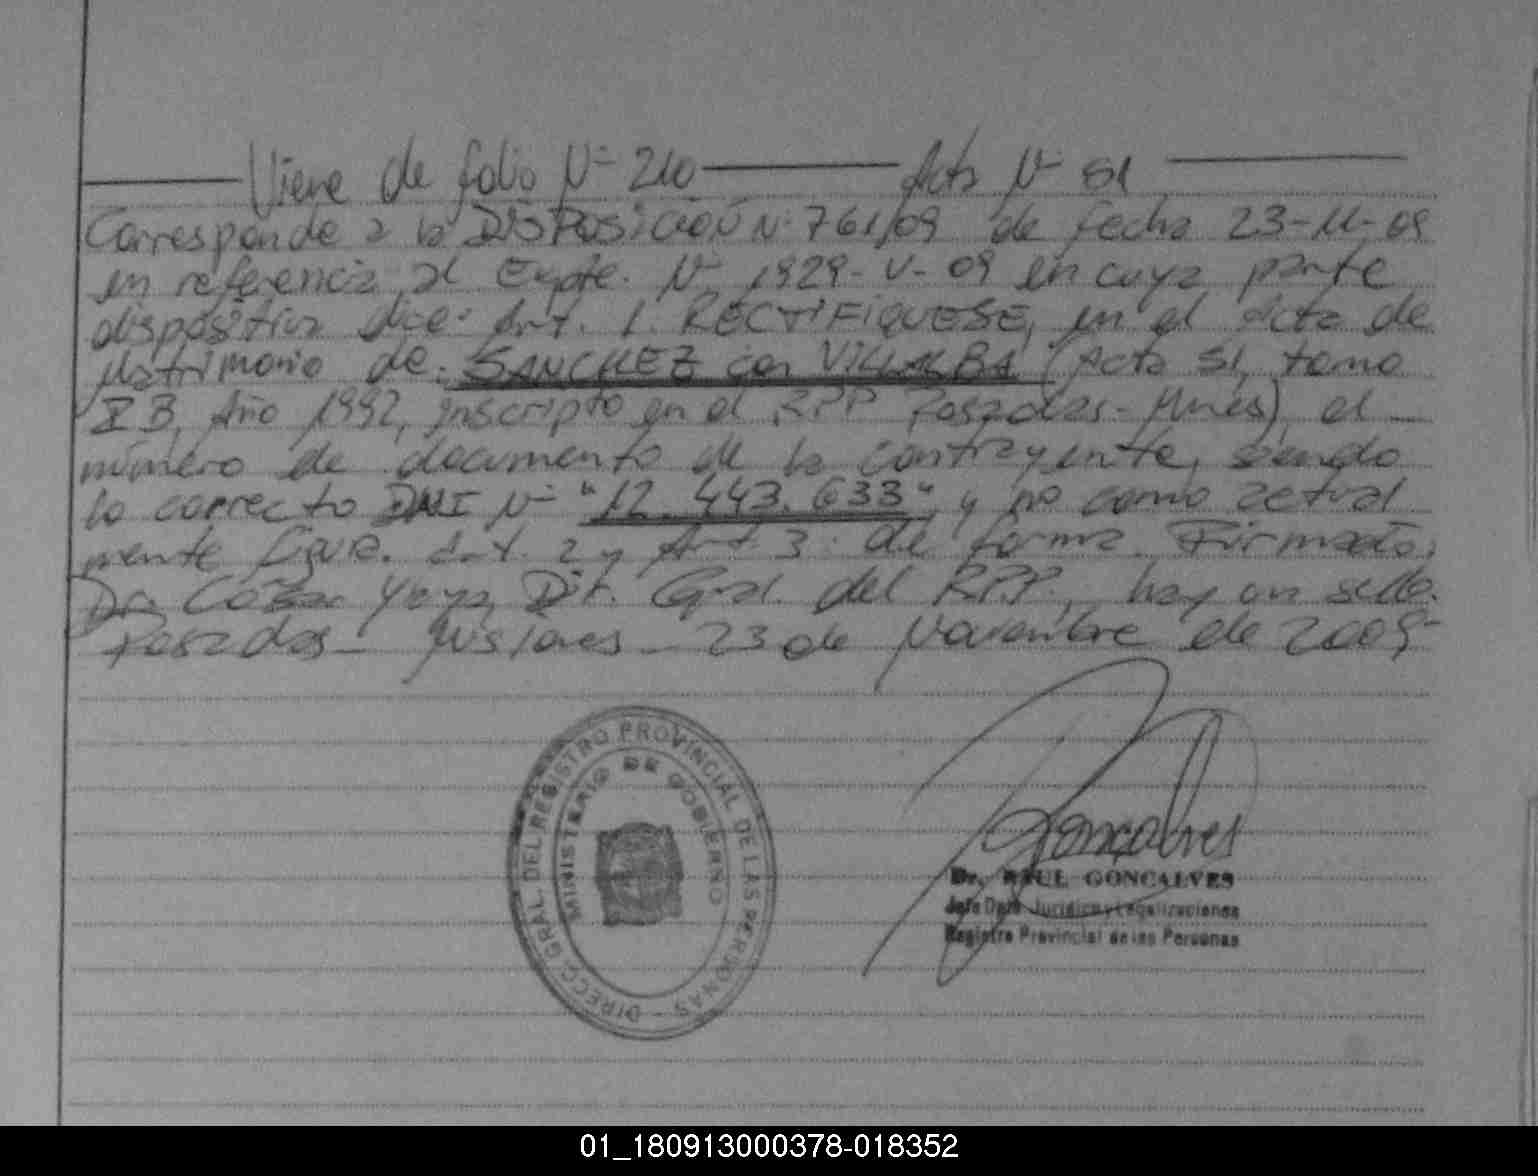 Viene de folio Nº 210 — Acta Nº 51 —
Corresponde a la DISPOSICIÓN Nº 761/09 de fecha 23-11-09
en referencia al Expte. Nº 1929-V-09 en cuya parte
dispositiva dice: Art. 1. RECTIFIQUESE, en el acta de
Matrimonio de: SANCHEZ con VILLALBA (Acta 51, tomo
II B, Año 1992, inscripto en el RPP Posadas - Mnes), el
número de documento de la contrayente, siendo
lo correcto DNI Nº "12.443.633" y no como actual
mente figura. Art. 2 y Art. 3: de forma. Firmado:
Dr. Yaya, Dir. Gral. del R.P.P., hay un sello.
Posadas - Misiones - 23 de Noviembre de 2009-
DIRECC. GRAL. DEL REGISTRO PROVINCIAL DE LAS PERSONAS -
MINISTERIO DE GOBIERNO
Goncalves
Dr. RAUL GONCALVES
Jefe Dpto. Jurídico y Legalizaciones
Registro Provincial de las Personas
01_180913000378-018352